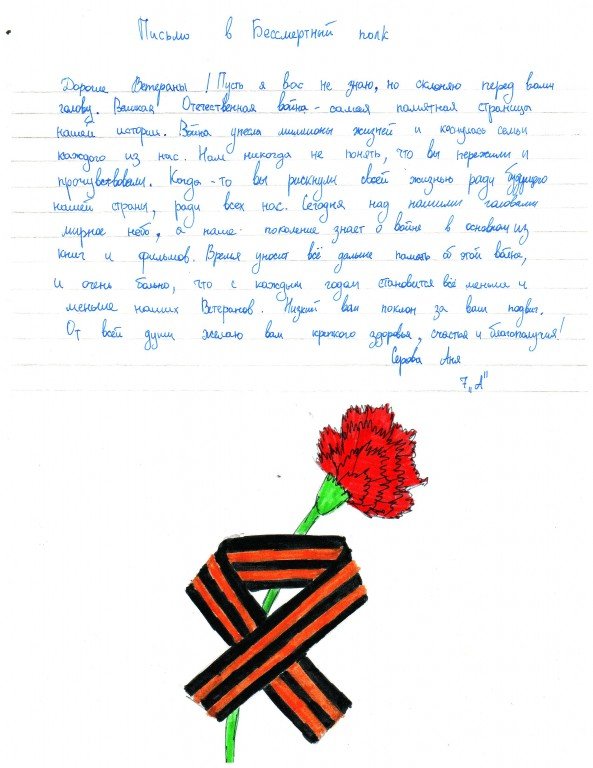 Письмо в Бессмертный полк
Дорогие Ветераны! Пусть я вас не знаю, но склоняю перед вами
голову. Великая Отечественная война - самая памятная страница
нашей истории. Война унесла миллионы жизней и коснулась семьи
каждого из нас. Нам никогда не понять, что вы пережили и
прочувствовали. Когда-то вы рискнули своей жизнью ради будущего
нашей страны, ради всех нас. Сегодня над нашими головами
мирное небо, а наше поколение знает о войне в основном из
книг и фильмов. Время уносит всё дальше память об этой войне,
и очень больно, что с каждым годом становится всё меньше и
меньше наших Ветеранов. Низкий вам поклон за ваш подвиг.
От всей души желаю вам крепкого здоровья, счастья и благополучия!
Серова Аня
7 „А"